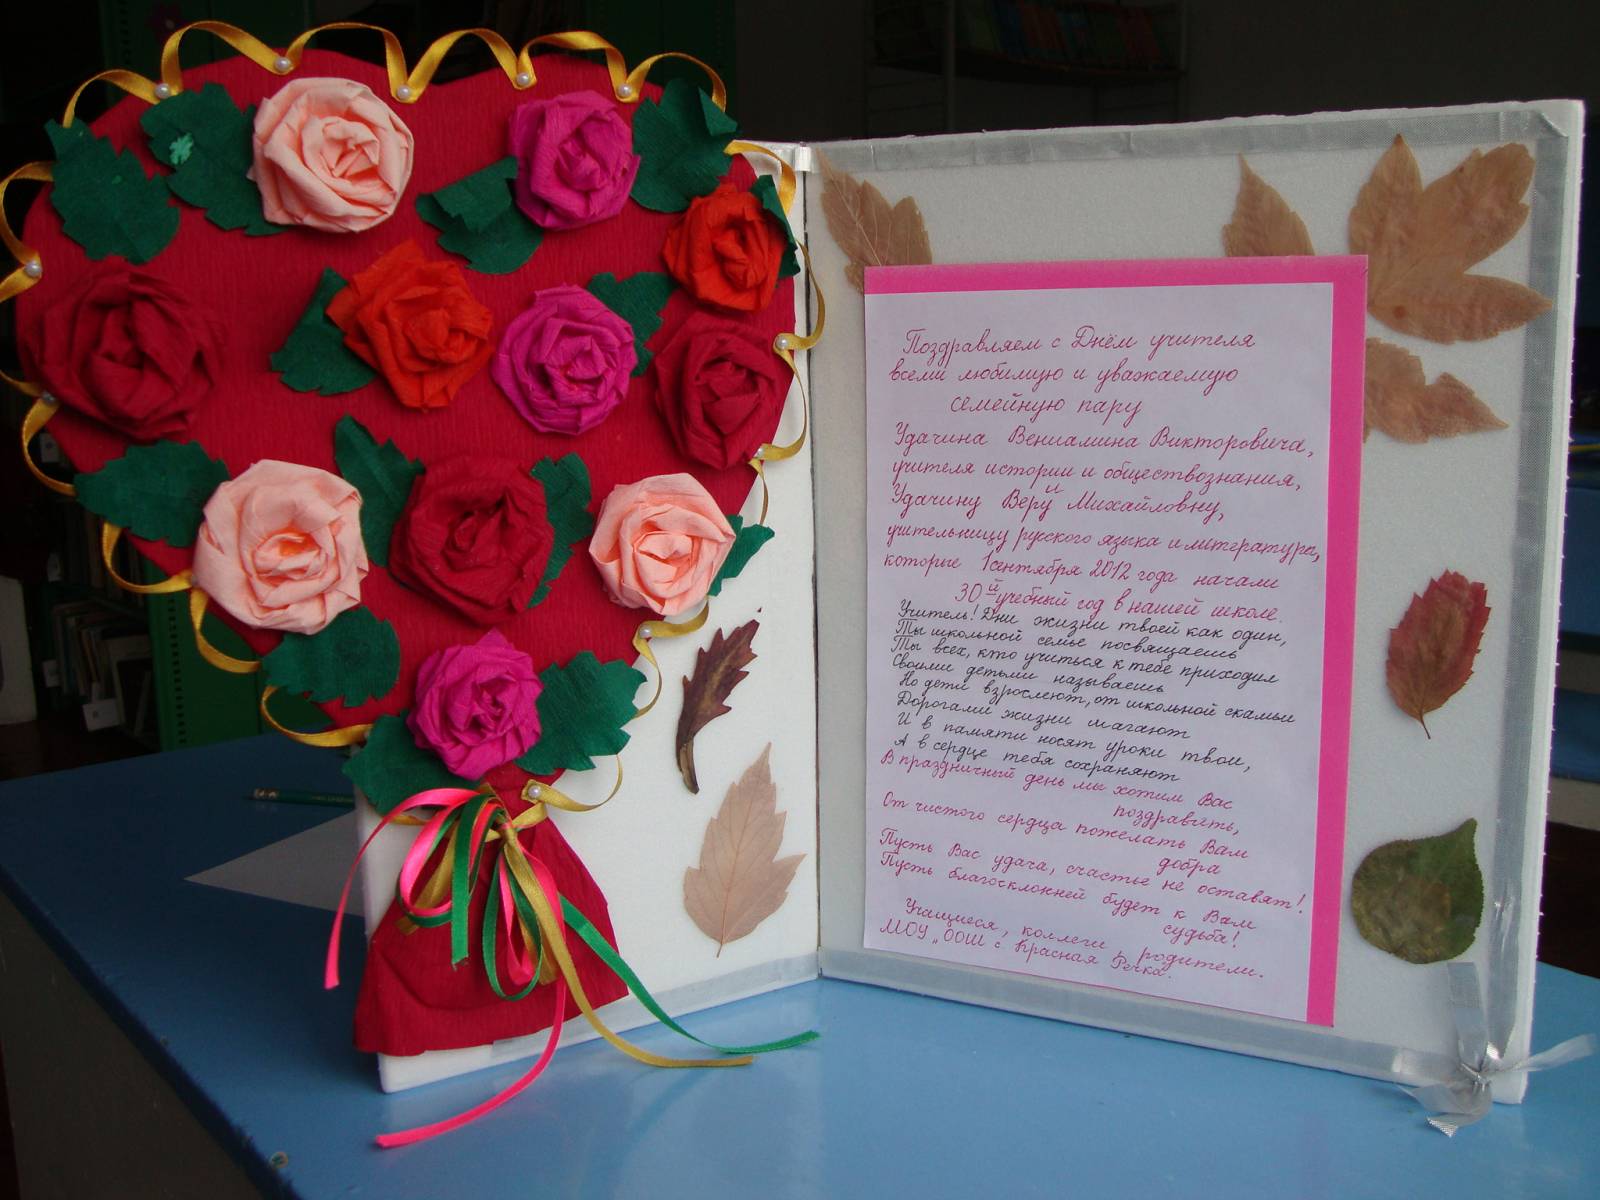 Поздравляем с Днём учителя
всеми любимую и уважаемую
семейную пару
Удачина Вениамина Викторовича,
учителя истории и обществознания,
и
Удачину Веру Михайловну,
учительницу русского языка и литературы,
которые 1 сентября 2012 года начали
30й учебный год в нашей школе.
Учитель! Дни жизни твоей как один,
Ты школьной семье посвящаешь
Ты всех, кто учиться к тебе приходил
Своими детьми называешь
Но дети взрослеют, от школьной скамьи
Дорогами жизни шагают
И в памяти носят уроки твои,
А в сердце тебя сохраняют
В праздничный день мы хотим Вас
поздравить,
От чистого сердца пожелать Вам
добра
Пусть Вас удача, счастье не оставят!
Пусть благосклонней будет к Вам
судьба!
Учащиеся, коллеги, родители.
МОУ „ООШ с Красная Речка.